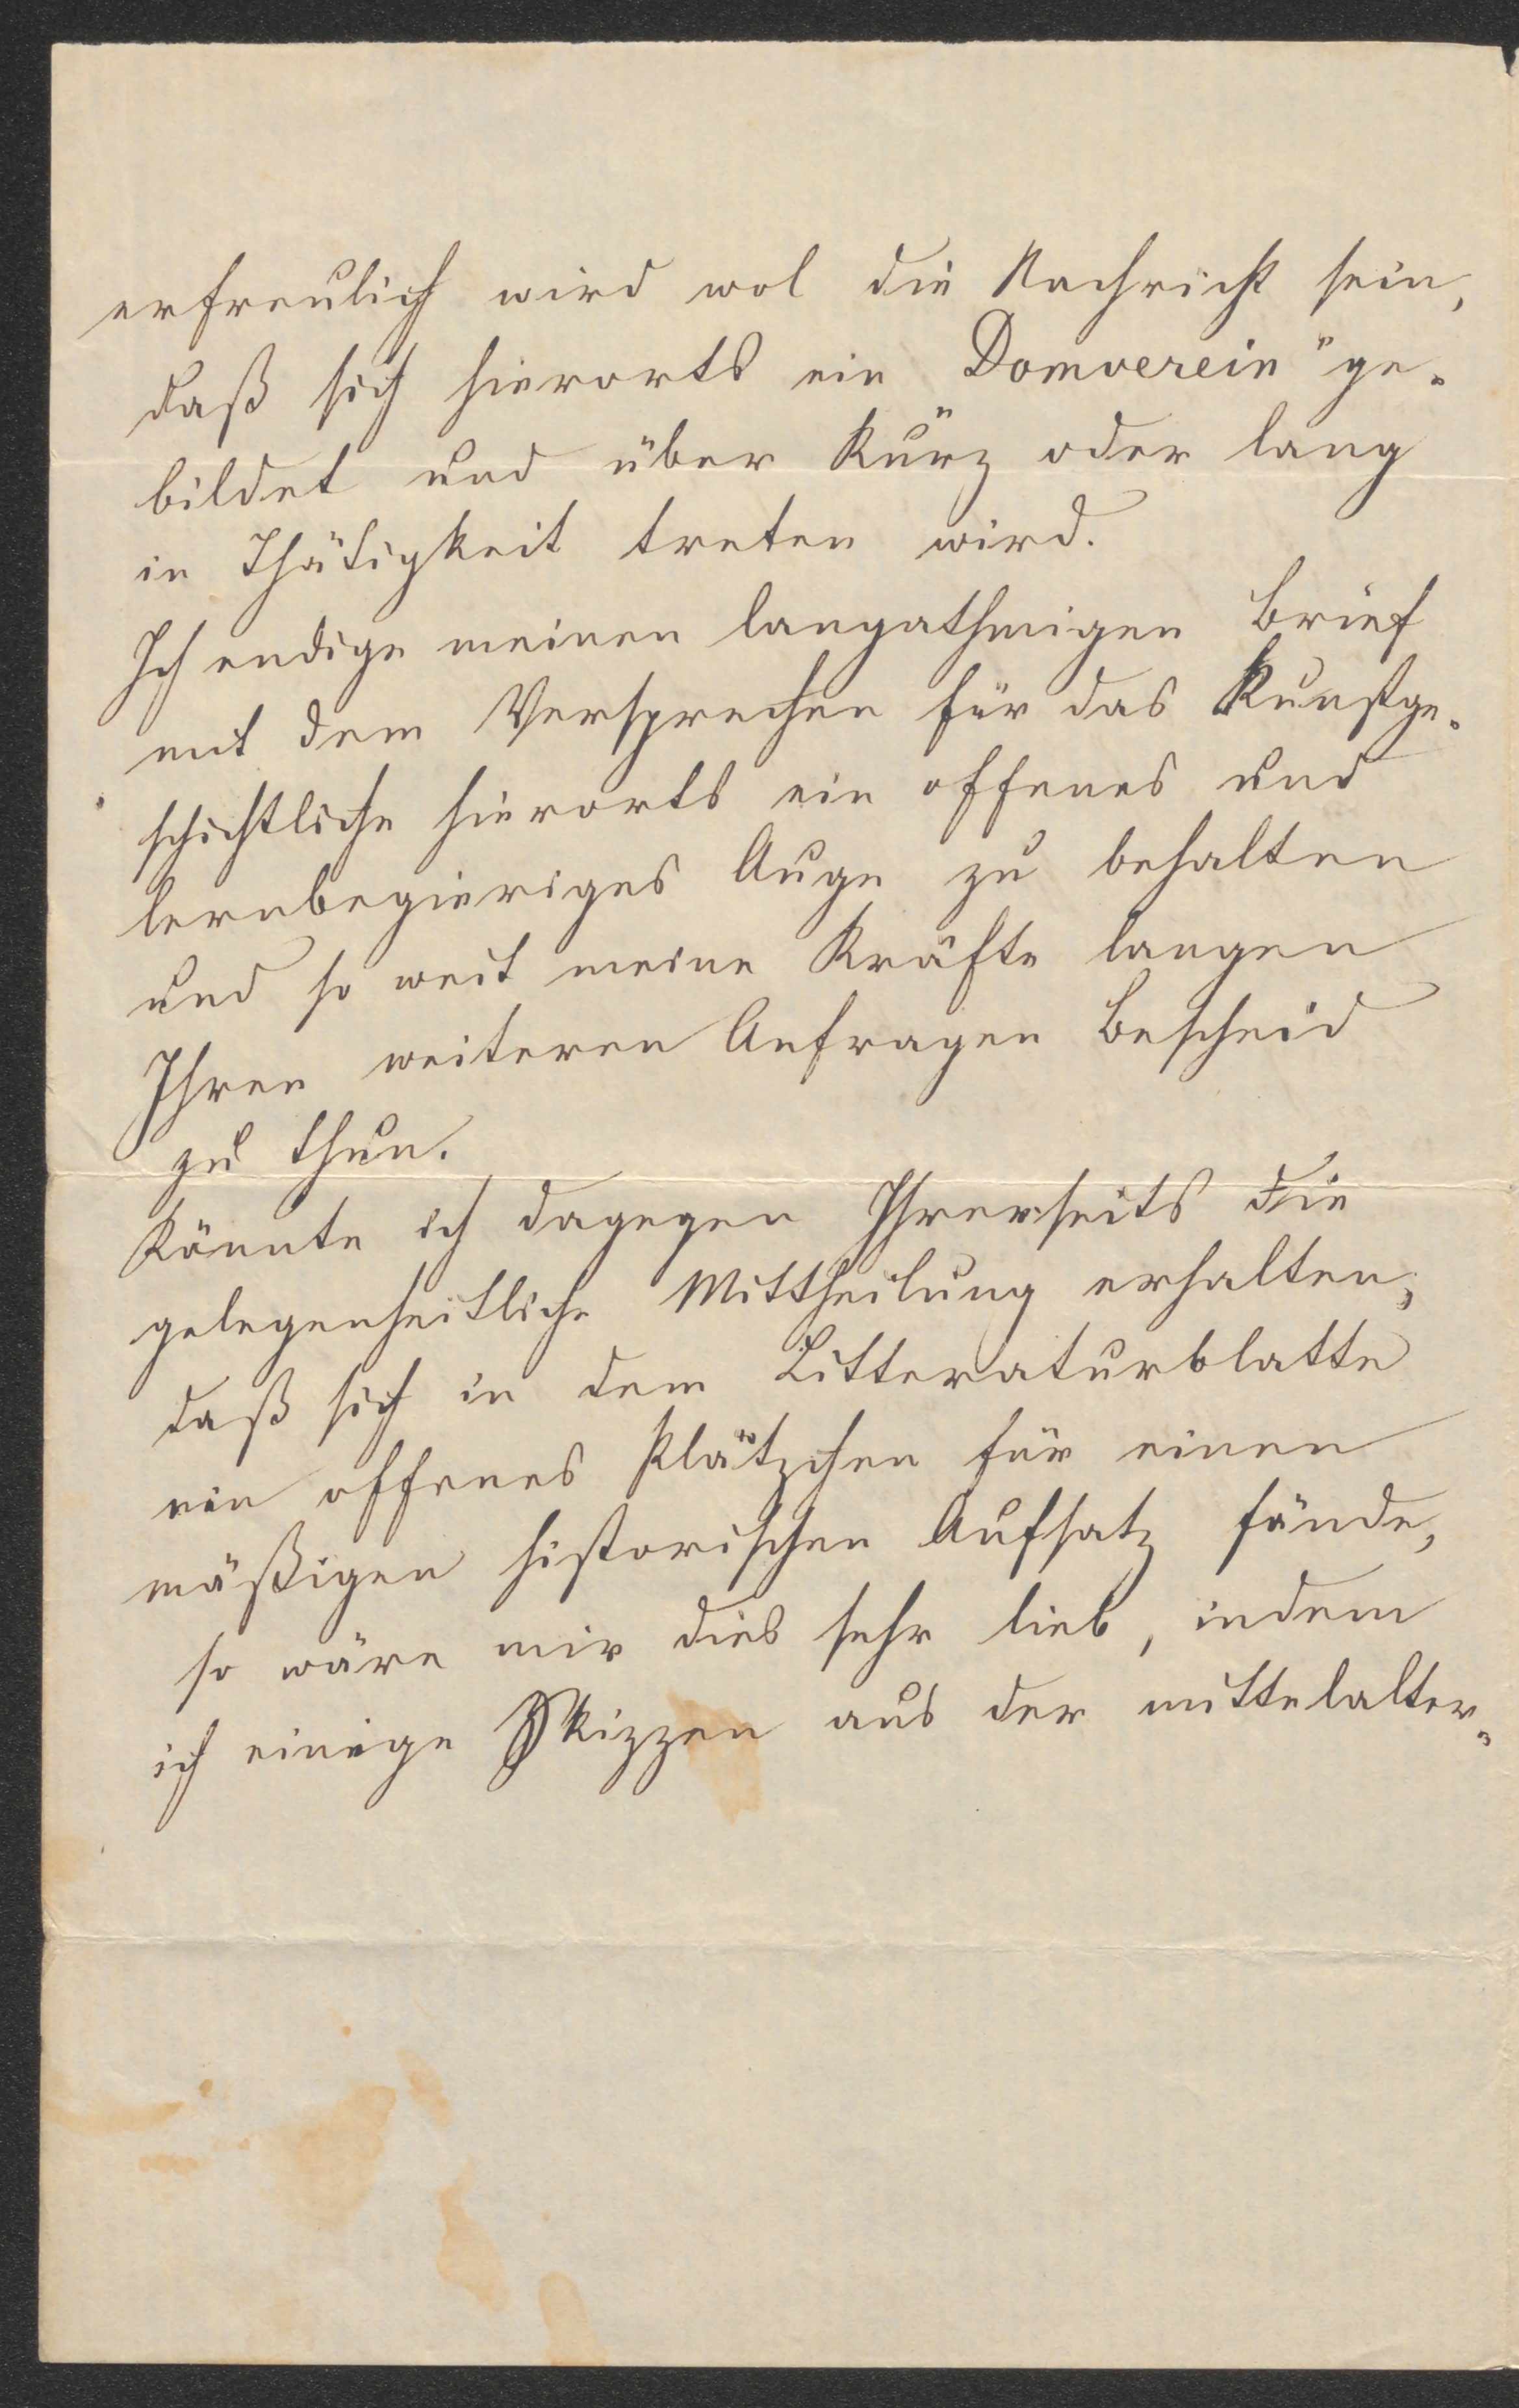 erfreulich wird wol die Nachricht sein,
daß sich hierorts ein „Domverein" ge-
bildet und über kurz oder lang
in Thätigkeit treten wird.
Ich endige meinen langathmigen Brief
mit dem Versprechen für das Kunstge-
schichtliche hierorts ein offenes und
lernbegieriges Auge zu behalten
und so weit meine Kräfte langen
Ihren weiteren Anfragen Bescheid
zu thun.
Könnte ich dagegen Ihrerseits die
gelegenheitliche Mittheilung erhalten,
daß sich in dem Litteraturblatte
ein offenes Plätzchen für einen
mäßigen historischen Aufsatz fände,
so wäre mir dies sehr lieb, indem
ich einige Skizzen aus der mittelalter-